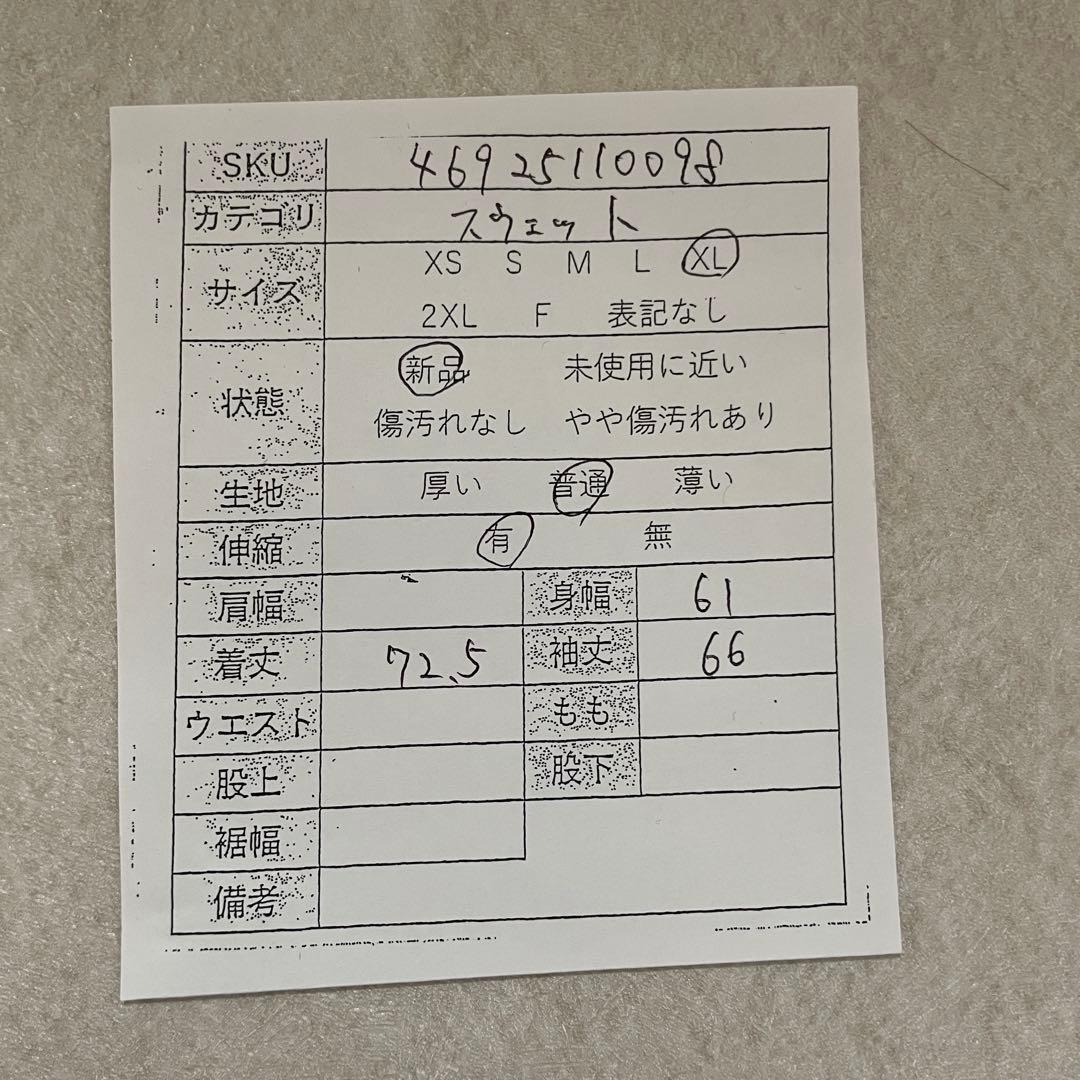 SKU 46925110098
カテゴリ スウェット
サイズ XS S M L XL
2XL F 表記なし
状態 新品 未使用に近い
傷汚れなし やや傷汚れあり
生地 厚い 普通 薄い
伸縮 有 無
肩幅 身幅 61
着丈 72.5 袖丈 66
ウエスト もも
股上 股下
裾幅
備考